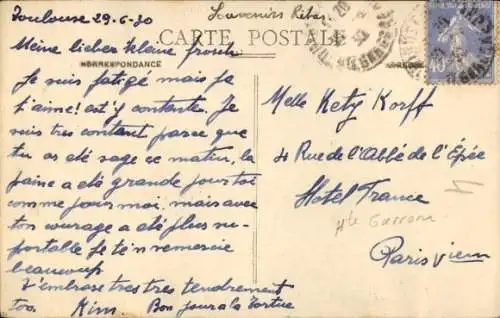 Toulouse 29-6-30
Souvenirs
CARTE POSTALE
CORRESPONDANCE
Meine lieber kleine frosch
Je suis fatigé mais je
t'aime! est y contante. Je
suis tres contant parce que
tu as été sage ce matin, la
paine a été grande pour toi
comme pour moi, mais avec
ton courage a été plus su-
portable Je te n remercie
beaucoup
J'embrase tres tres tendrement
too. Kim. Bon jour a la Tortue
Melle Kety Korff
4 Rue de l'Abbé de l'Épée
Hotel France
Hte Garonne
Paris Vieme